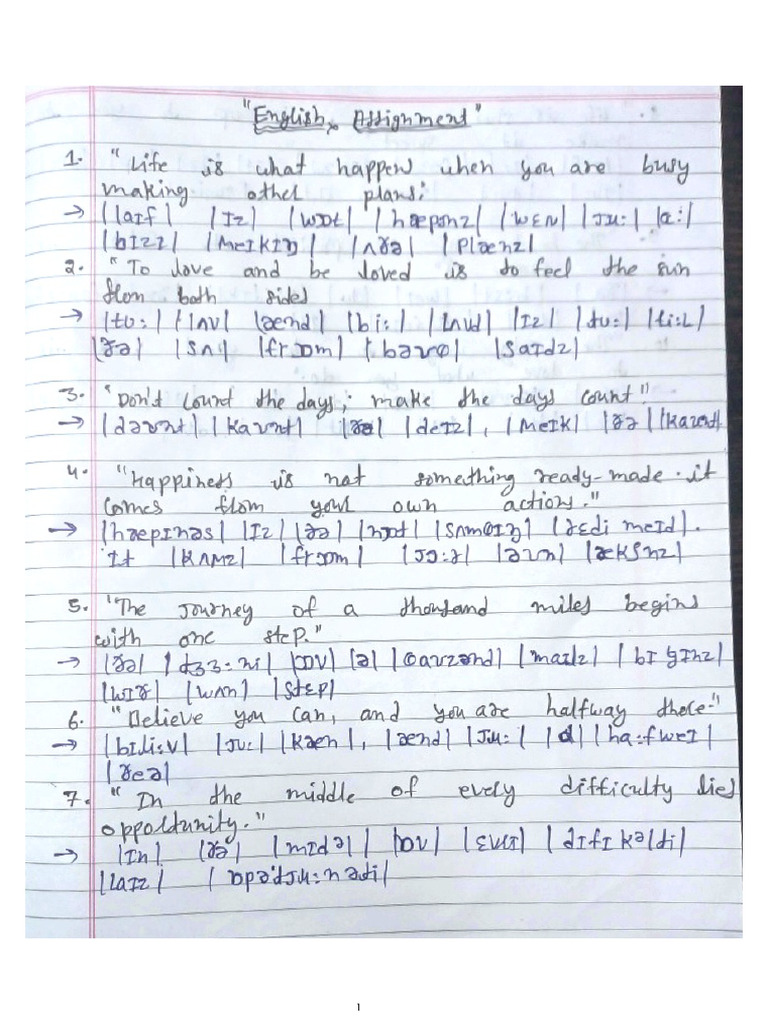 "English Assignment"
1. "Life is what happen when you are busy
making other plans;
→ |laɪf| |ɪz| |wɒt| |hæpənz| |wɛn| |ju:| |a:|
|bɪzɪ| |meɪkɪŋ| |ʌðə| |plænz|
2. "To love and be loved is to feel the sun
from both sides
→ |tʊ:| |lʌv| |ænd| |bi:| |lʌvd| |ɪz| |tʊ:| |fi:l|
|ðə| |sʌn| |frɒm| |bəʊθ| |saɪdz|
3. "Don't count the days; make the days count"
→ |dəʊnt| |kaʊnt| |ðə| |deɪz|, |meɪk| |ðə| |kaʊnt|
4. "Happiness is not something ready-made. it
comes from your own action."
→ |hæpɪnəs| |ɪz| |ðə| |nɒt| |sʌmθɪŋ| |rɛdi meɪd|.
It |kʌmz| |frɒm| |jɔ:r| |əʊn| |ækʃnz|
5. "The journey of a thousand miles begins
with one step."
→ |ðə| |dʒɜ:ni| |ɒv| |ə| |θaʊzənd| |maɪlz| |bɪgɪnz|
|wɪð| |wʌn| |stɛp|
6. "Believe you can, and you are halfway there."
→ |bɪli:v| |ju:| |kæn|, |ænd| |ju:| |a| |ha:fweɪ|
|ðeə|
7. "In the middle of every difficulty lies
opportunity."
→ |ɪn| |ðə| |mɪdəl| |ɒv| |ɛvrɪ| |dɪfɪkəlti|
|laɪz| |ɒpə'tju:nəti|
1